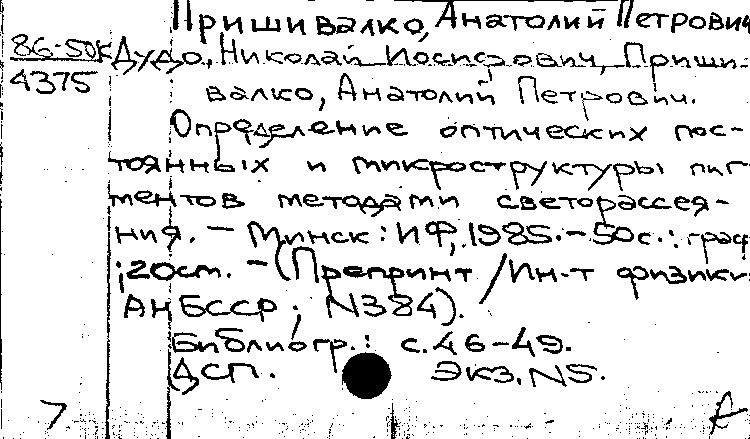 Пришивалко, Анатолий Петрович
86-50к Дудо, Николай Иосифович, Приши-
4375
валко, Анатолий Петрович.
Определение оптических пос-
тоянных и микроструктуры пиг
ментов методами светорассея-
ния. - Минск: ИФ, 1985. - 50с.: граф
; 20см. - (Препринт / Ин-т физики
АН БССР; N384).
Библиогр.: с. 46-49.
ДСП. Экз. N5.
7